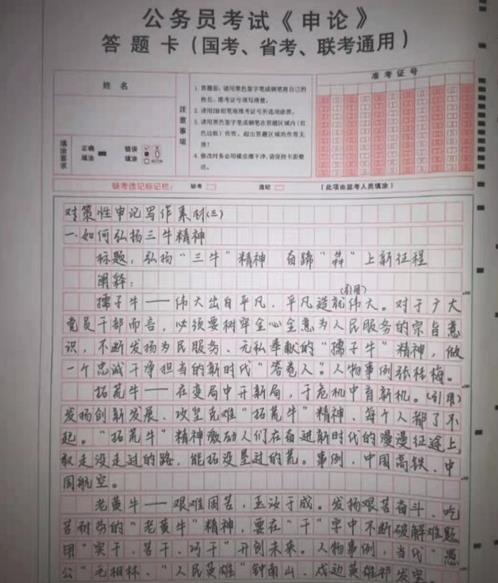 公务员考试《申论》
答题卡（国考、省考、联考通用）
姓名
准考证号
注意事项
填涂要求
正确填涂
错误填涂
缺考违记标记栏：
缺考
违纪
（此项由监考人员填涂）
对策性申论写作素材(三)
一.如何弘扬三牛精神
标题：弘扬"三牛"精神 自蹄"犇"上新征程
阐释：
(引用)
孺子牛——伟大出自平凡，平凡造就伟大。对于广大
党员干部而言，必须要树牢全心全意为人民服务的宗旨意
识，不断发扬为民服务、无私奉献的"孺子牛"精神，做
一个忠诚干净担当的新时代"答卷人"。人物事例张桂梅。
拓荒牛——在变局中开新局，于危机中育新机。(引用)
发扬创新发展、攻坚克难"拓荒牛"精神，每个人都了不
起。"拓荒牛"精神激励人们在奋进新时代的漫漫征途上，
敢走没走过的路，能拓没垦过的荒。事例，中国高铁、中
国航空。
老黄牛——艰难困苦，玉汝于成。发扬艰苦奋斗、吃
苦耐劳的"老黄牛"精神，要在"干"字中不断破解难题
用"实干、苦干、巧干"开创未来。人物事例，当代"愚
公"毛相林、"人民英雄"钟南山、戍边英雄